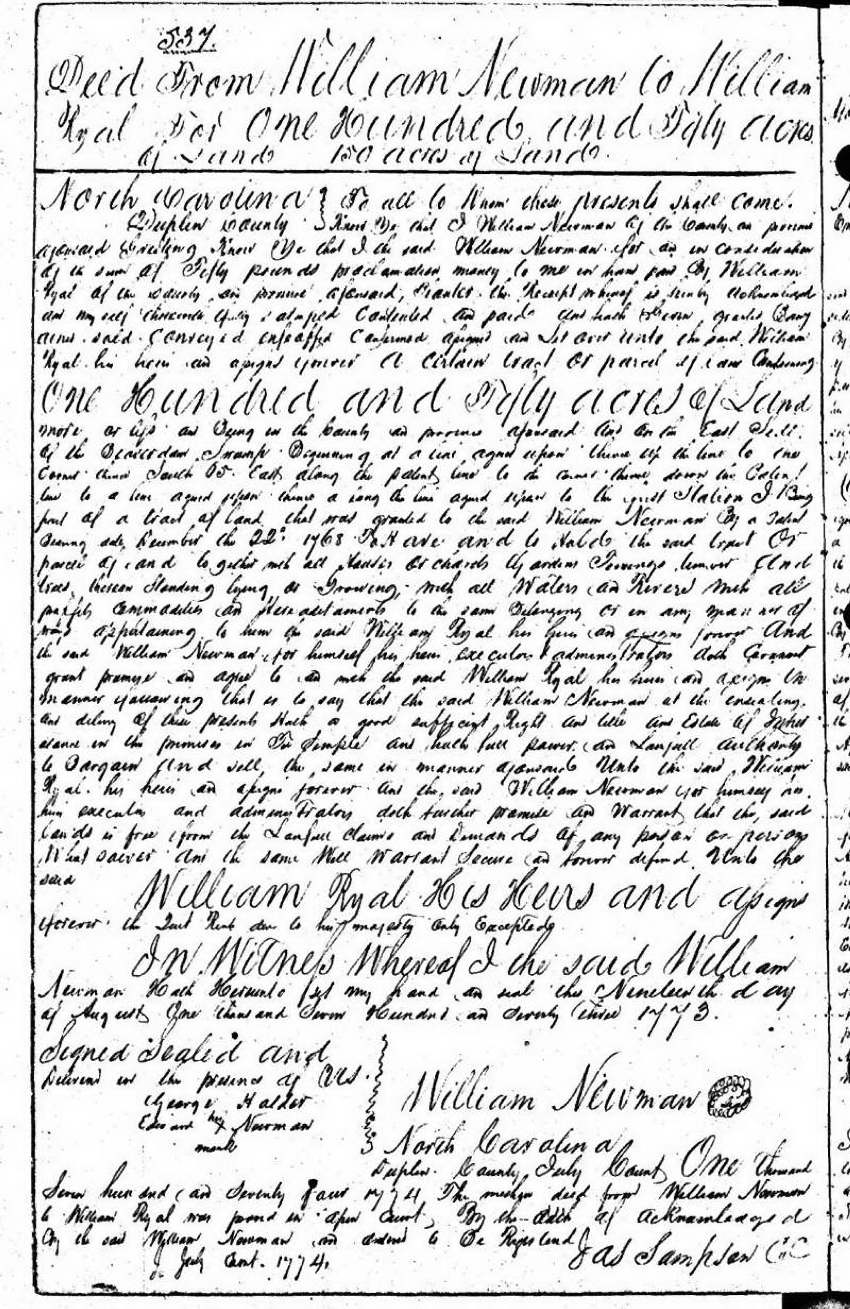 537.
Deed From William Newman to William
Ryal For One Hundred and Fifty acres
of Land 150 acres of Land.
North Carolina } To all to Whom these presents shall come.
Duplin County } Know Ye that I William Newman of the County and province
aforesaid Greeting Know Ye that I the said William Newman for and in consideration
of the sum of Fifty pounds proclamation money to me in hand paid By William
Ryal of the County and province aforesaid, the Receipt whereof is hereby acknowledged
and my self therewith fully and Contented and paid and hath Given granted Bargained
said Conveyed enfeoffed Confirmed assigned and Set over unto the said William
Ryal his heirs and assigns forever a certain tract or parcel of Land Containing
One Hundred and Fifty acres of Land
more or less and Lying in the County and province aforesaid and on the East Side
of the Swamp Beginning at a line agreed upon thence up the line to the
Corner thence South 65 East along the patent line to the corner thence down the Patent
line to a line agreed upon thence along the line agreed upon to the first Station It Being
part of a tract of land that was granted to the said William Newman By a Patent
Bearing date December the 22d 1768 To Have and to Hold the said tract or
parcel of Land together with all Houses Orchards Gardens Fencings timber and
trees thereon Standing lying or Growing with all Waters and Rivers with all
profits Commodities and Hereditaments to the same Belonging or in any manner of
ways appertaining to him the said William Ryal his heirs and assigns forever And
the said William Newman for himself his heirs executors & administrators doth Covenant
grant promise and agree to and with the said William Ryal his heirs and assigns in
manner following that is to say that the said William Newman at the ensealing
and delivery of these presents Hath a good sufficient Right and title and Estate of Inher
etance in the premises in Fee Simple and hath full power and Lawfull authority
to Bargain and sell the same in manner aforesaid Unto the said William
Ryal his heirs and assigns forever and the said William Newman for himself his
heirs executors and administrators doth further promise and Warrant that the said
lands is free from the Lawfull Claims and Demands of any person or persons
What soever and the same Will Warrant Secure and forever defend Unto the
said
William Ryal His Heirs and assigns
forever the Quit Rent due to his majesty Only Excepted
In Witness Whereof I the said William
Newman Hath Hereunto set my hand and seal this Nineteenth day
of August One thousand Seven Hundred and Seventy three 1773.
Signed Sealed and
Delivered in the presence of Us.
George Halder
Edward his Newman
mark
William Newman Seal
North Carolina
Duplin County July Court One thousand
Seven hundred and Seventy Four 1774 The within deed from William Newman
to William Ryal was proved in open Court By the Oath of acknowledged
By the said William Newman and ordered to Be Registered
July Court. 1774. Jas Sampson CC